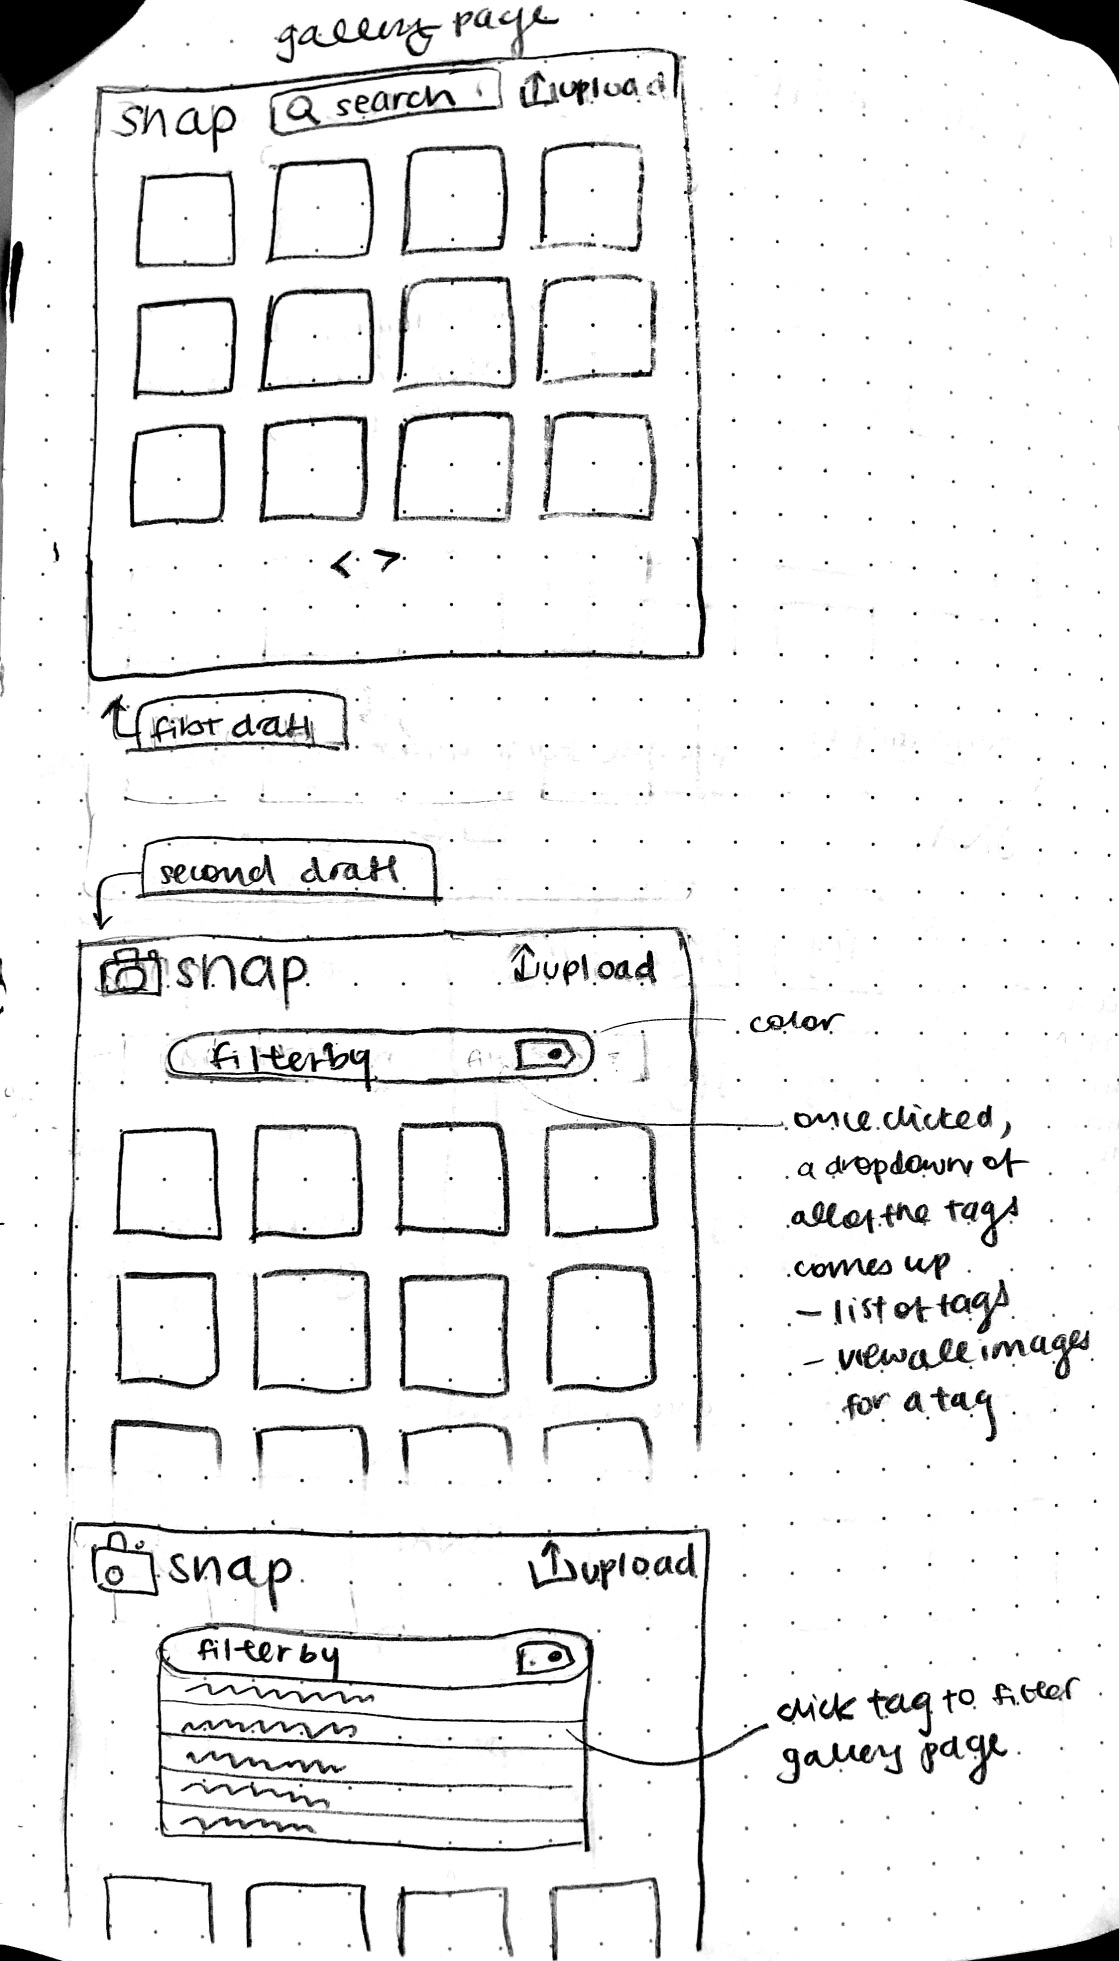 gallery page
snap
search
upload
< >
first draft
second draft
snap
upload
filter by
color
once clicked,
a dropdown of
all of the tags
comes up
- list of tags
- view all images
for a tag
snap
upload
filter by
click tag to filter
gallery page